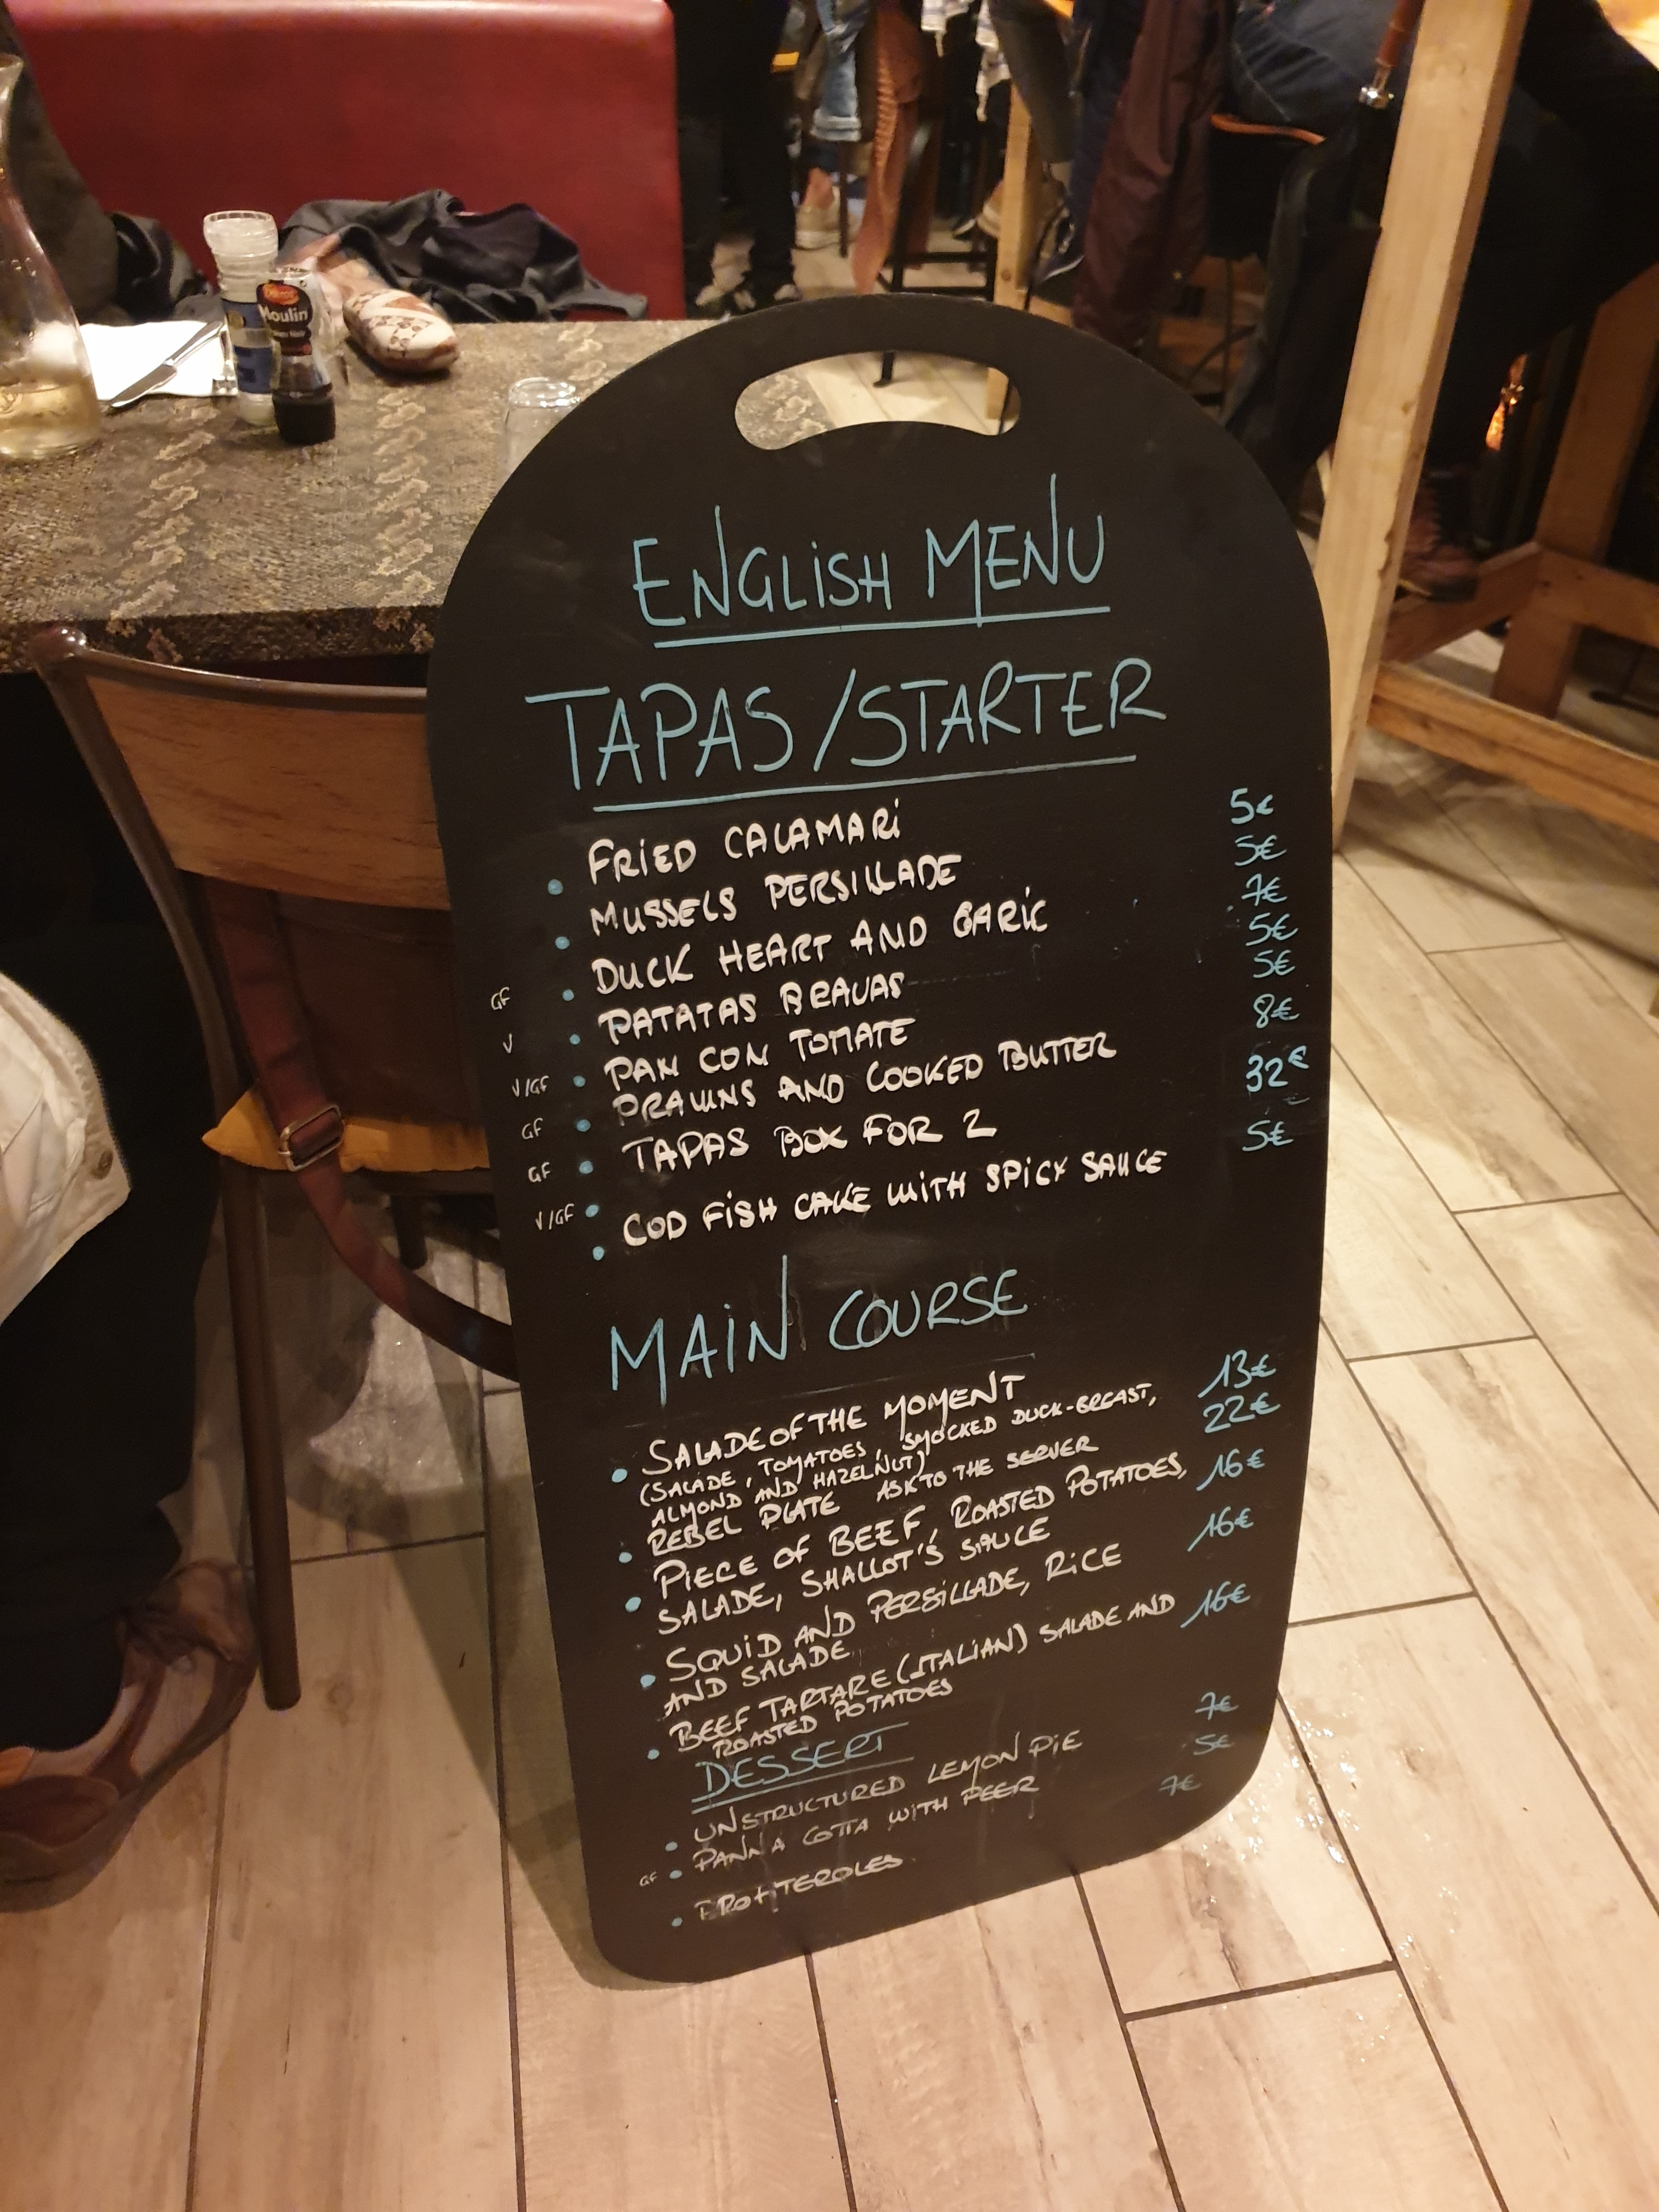 Moulin
ENGLISH MENU
TAPAS/STARTER
• FRIED CALAMARI 5€
• MUSSELS PERSILLADE 5€
GF • DUCK HEART AND GARIC 7€
V • PATATAS BRAVAS 5€
V/GF • PAN CON TOMATE 5€
GF • PRAWNS AND COOKED BUTTER 8€
GF • TAPAS BOX FOR 2 32€
V/GF • COD FISH CAKE WITH SPICY SAUCE 5€
•
MAIN COURSE
• SALADE OF THE MOMENT 13€
(SALADE, TOMATOES, SMOCKED DUCK-BREAST,
ALMOND AND HAZELNUT)
• REBEL PLATE ASK TO THE SERVER 22€
• PIECE OF BEEF, ROASTED POTATOES, 16€
SALADE, SHALLOT'S SAUCE
• SQUID AND PERSILLADE, RICE 16€
AND SALADE
• BEEF TARTARE (ITALIAN) SALADE AND 16€
ROASTED POTATOES
DESSERT
• UNSTRUCTURED LEMON PIE 7€
GF • PANNA COTTA WITH PEER 5€
• PROFITEROLES 7€